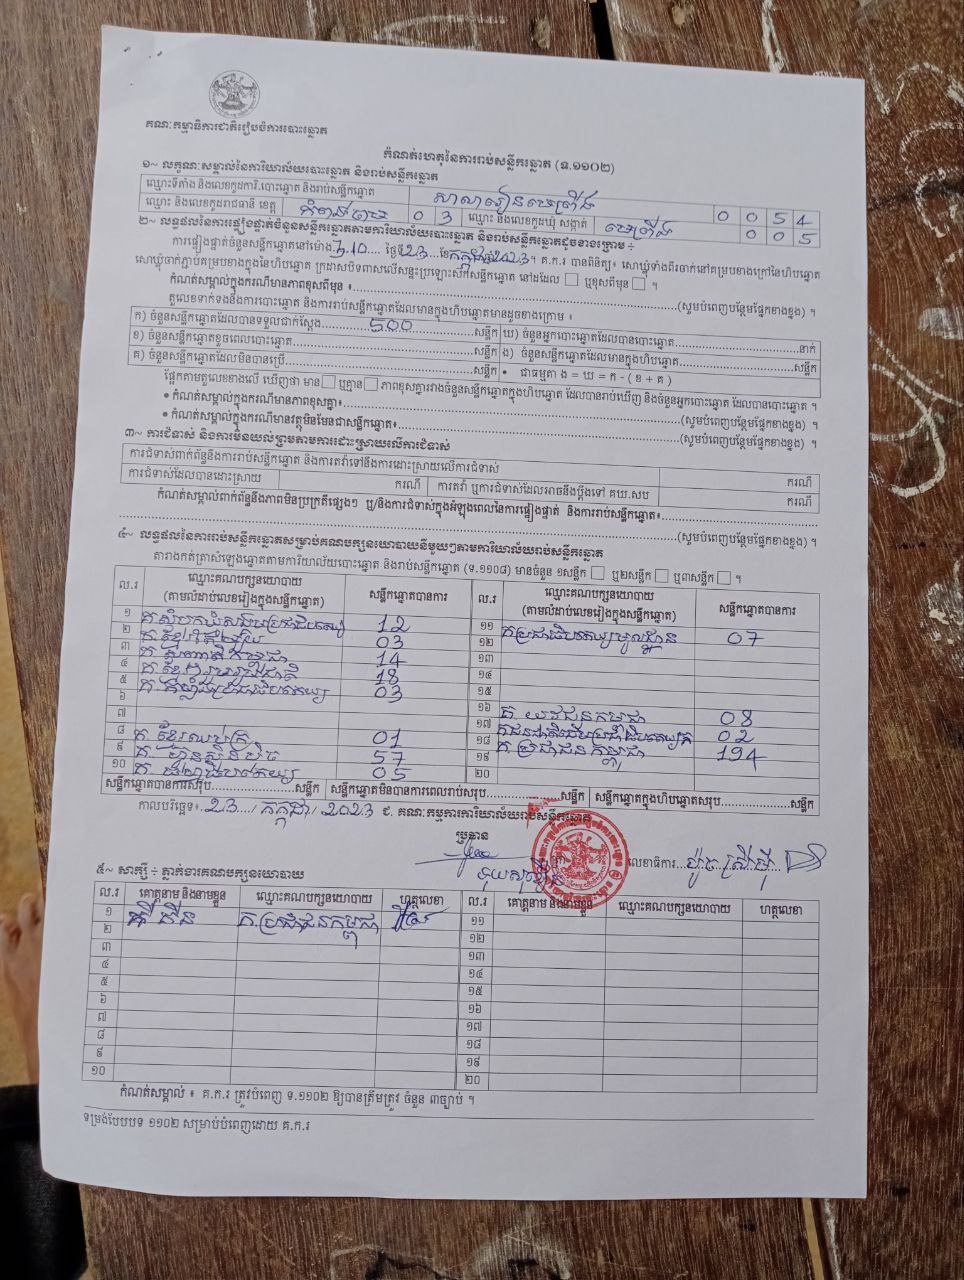 គណៈកម្មាធិការជាតិរៀបចំការបោះឆ្នោត
កំណត់ហេតុនៃការរាប់សន្លឹកឆ្នោត (ទ.១១០២)
១~ លក្ខណៈសម្គាល់នៃការិយាល័យបោះឆ្នោត និងរាប់សន្លឹកឆ្នោត
ឈ្មោះទីតាំង និងលេខកូដការិ.បោះឆ្នោត និងរាប់សន្លឹកឆ្នោត សាលារៀនមេព្រីង 0 0 5 4
ឈ្មោះ និងលេខកូដរាជធានី ខេត្ត កំពង់ចាម 0 3 ឈ្មោះ និងលេខកូដឃុំ សង្កាត់ មេព្រីង 0 0 5
២~ លទ្ធផលនៃការផ្ទៀងផ្ទាត់ចំនួនសន្លឹកឆ្នោតតាមការិយាល័យបោះឆ្នោត និងរាប់សន្លឹកឆ្នោតដូចខាងក្រោម ÷
ការផ្ទៀងផ្ទាត់ចំនួនសន្លឹកឆ្នោតនៅម៉ោង ថ្ងៃទី 23 ខែ កក្កដា ឆ្នាំ 2023 ។ គ.ក.រ បានពិនិត្យ៖ សោឃ្លុំទាំងពីរចាក់នៅគម្របខាងក្រៅនៃហិបឆ្នោត
សោឃ្លុំចាក់ភ្ជាប់គម្របខាងក្នុងនៃហិបឆ្នោត ក្រដាសបិទពាសលើសន្ទះប្រឡោះសៀតសន្លឹកឆ្នោត នៅដដែល ឬខុសពីមុន ។
កំណត់សម្គាល់ក្នុងករណីមានភាពខុសពីមុន ៖ (សូមបំពេញបន្ថែមផ្នែកខាងខ្នង) ។
តួលេខទាក់ទងនឹងការបោះឆ្នោត និងការរាប់សន្លឹកឆ្នោតដែលមានក្នុងហិបឆ្នោតមានដូចខាងក្រោម ៖
ក) ចំនួនសន្លឹកឆ្នោតដែលបានទទួលជាក់ស្តែង 500 សន្លឹក ឃ) ចំនួនអ្នកបោះឆ្នោតដែលបានបោះឆ្នោត នាក់
ខ) ចំនួនសន្លឹកឆ្នោតខូចពេលបោះឆ្នោត សន្លឹក ង) ចំនួនសន្លឹកឆ្នោតដែលមានក្នុងហិបឆ្នោត សន្លឹក
គ) ចំនួនសន្លឹកឆ្នោតដែលមិនបានប្រើ សន្លឹក • ជាធម្មតា ង = ឃ = ក - ( ខ + គ )
ផ្អែកតាមតួលេខខាងលើ ឃើញថា មាន ឬគ្មាន ភាពខុសគ្នារវាងចំនួនសន្លឹកឆ្នោតក្នុងហិបឆ្នោត ដែលបានរាប់ឃើញ និងចំនួនអ្នកបោះឆ្នោត ដែលបានបោះឆ្នោត ។
• កំណត់សម្គាល់ក្នុងករណីមានភាពខុសគ្នា៖ (សូមបំពេញបន្ថែមផ្នែកខាងខ្នង) ។
• កំណត់សម្គាល់ក្នុងករណីមានវត្ថុមិនមែនជាសន្លឹកឆ្នោត៖ (សូមបំពេញបន្ថែមផ្នែកខាងខ្នង) ។
៣~ ការជំទាស់ និងការមិនយល់ព្រមតាមការដោះស្រាយលើការជំទាស់
ការជំទាស់ពាក់ព័ន្ធនឹងការរាប់សន្លឹកឆ្នោត និងការតវ៉ាទៅនឹងការដោះស្រាយលើការជំទាស់ ករណី
ការជំទាស់ដែលបានដោះស្រាយ ករណី ការតវ៉ា ឬការជំទាស់ដែលអាចនឹងប្តឹងទៅ គឃ.សប ករណី
កំណត់សម្គាល់ពាក់ព័ន្ធនឹងភាពមិនប្រក្រតីផ្សេងៗ ឬ/និងការជំទាស់ក្នុងអំឡុងពេលនៃការផ្ទៀងផ្ទាត់ និងការរាប់សន្លឹកឆ្នោត៖
(សូមបំពេញបន្ថែមផ្នែកខាងខ្នង) ។
៤~ លទ្ធផលនៃការរាប់សន្លឹកឆ្នោតសម្រាប់គណបក្សនយោបាយនីមួយៗតាមការិយាល័យរាប់សន្លឹកឆ្នោត
តារាងកត់ត្រាសំឡេងឆ្នោតតាមការិយាល័យបោះឆ្នោត និងរាប់សន្លឹកឆ្នោត (ទ.១១០៨) មានចំនួន ១សន្លឹក ឬ២សន្លឹក ឬ៣សន្លឹក ។
ល.រ ឈ្មោះគណបក្សនយោបាយ (តាមលំដាប់លេខរៀងក្នុងសន្លឹកឆ្នោត) សន្លឹកឆ្នោតបានការ ល.រ ឈ្មោះគណបក្សនយោបាយ (តាមលំដាប់លេខរៀងក្នុងសន្លឹកឆ្នោត) សន្លឹកឆ្នោតបានការ
១ 12 ១១
២ 03 ១២ គ.ប្រជាធិបតេយ្យមូលដ្ឋាន 07
៣ 14 ១៣
៤ 18 ១៤
៥ 03 ១៥
៦ ១៦ គ. យុវជនកម្ពុជា 08
៧ ១៧ 02
៨ គ. ខ្មែរឈប់ក្រ 01 ១៨ គ.ប្រជាជនកម្ពុជា 194
៩ គ. ហ៊្វុនស៊ិនប៉ិច 57 ១៩
១០ 05 ២០
សន្លឹកឆ្នោតបានការសរុប សន្លឹក សន្លឹកឆ្នោតមិនបានការពេលរាប់សរុប សន្លឹក សន្លឹកឆ្នោតក្នុងហិបឆ្នោតសរុប សន្លឹក
កាលបរិច្ឆេទ៖ 23 / កក្កដា / 2023 ជ. គណៈកម្មការការិយាល័យរាប់សន្លឹកឆ្នោត
ប្រធាន
លេខាធិការ
៥~ សាក្សី ÷ ភ្នាក់ងារគណបក្សនយោបាយ
ល.រ គោត្តនាម និងនាមខ្លួន ឈ្មោះគណបក្សនយោបាយ ហត្ថលេខា ល.រ គោត្តនាម និងនាមខ្លួន ឈ្មោះគណបក្សនយោបាយ ហត្ថលេខា
១ គ.ប្រជាជនកម្ពុជា ១១
២ ១២
៣ ១៣
៤ ១៤
៥ ១៥
៦ ១៦
៧ ១៧
៨ ១៨
៩ ១៩
១០ ២០
កំណត់សម្គាល់ ៖ គ.ក.រ ត្រូវបំពេញ ទ.១១០២ ឱ្យបានត្រឹមត្រូវ ចំនួន ៣ច្បាប់ ។
ទម្រង់បែបបទ ១១០២ សម្រាប់បំពេញដោយ គ.ក.រ